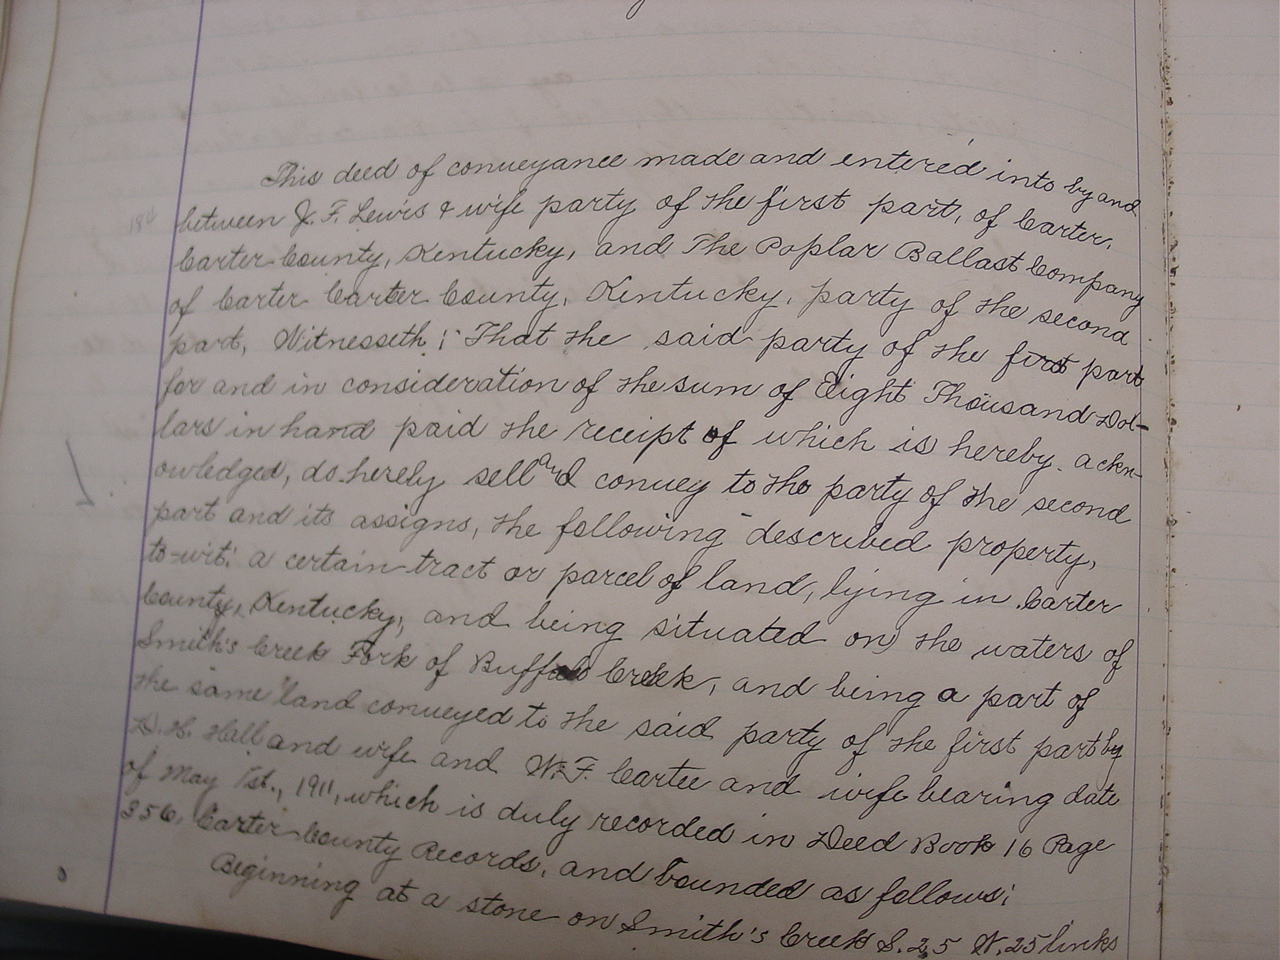 This deed of conveyance made and entered into by and
between J. F. Lewis & wife party of the first part, of Carter,
Carter County, Kentucky, and The Poplar Ballast Company
of Carter Carter County, Kentucky, party of the second
part, Witnesseth: That the said party of the first part
for and in consideration of the sum of Eight Thousand Dol-
lars in hand paid the receipt of which is hereby ackn-
owledged, do hereby sell and convey to the party of the second
part and its assigns, the following described property,
to-wit: a certain tract or parcel of land, lying in Carter
County, Kentucky, and being situated on the waters of
Smith's Creek Fork of Buffalo Creek, and being a part of
the same land conveyed to the said party of the first part by
D. H. Hall and wife and W. F. Cartee and wife bearing date
of May 1st., 1911, which is duly recorded in Deed Book 16 Page
356, Carter County Records, and bounded as follows:
Beginning at a stone on Smith's Creek S. 25 W. 25 links